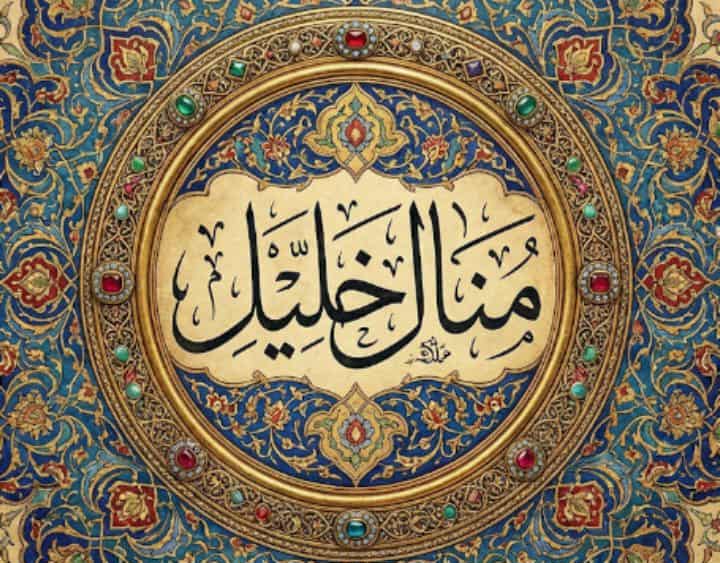 مُنَال خَلِيّل